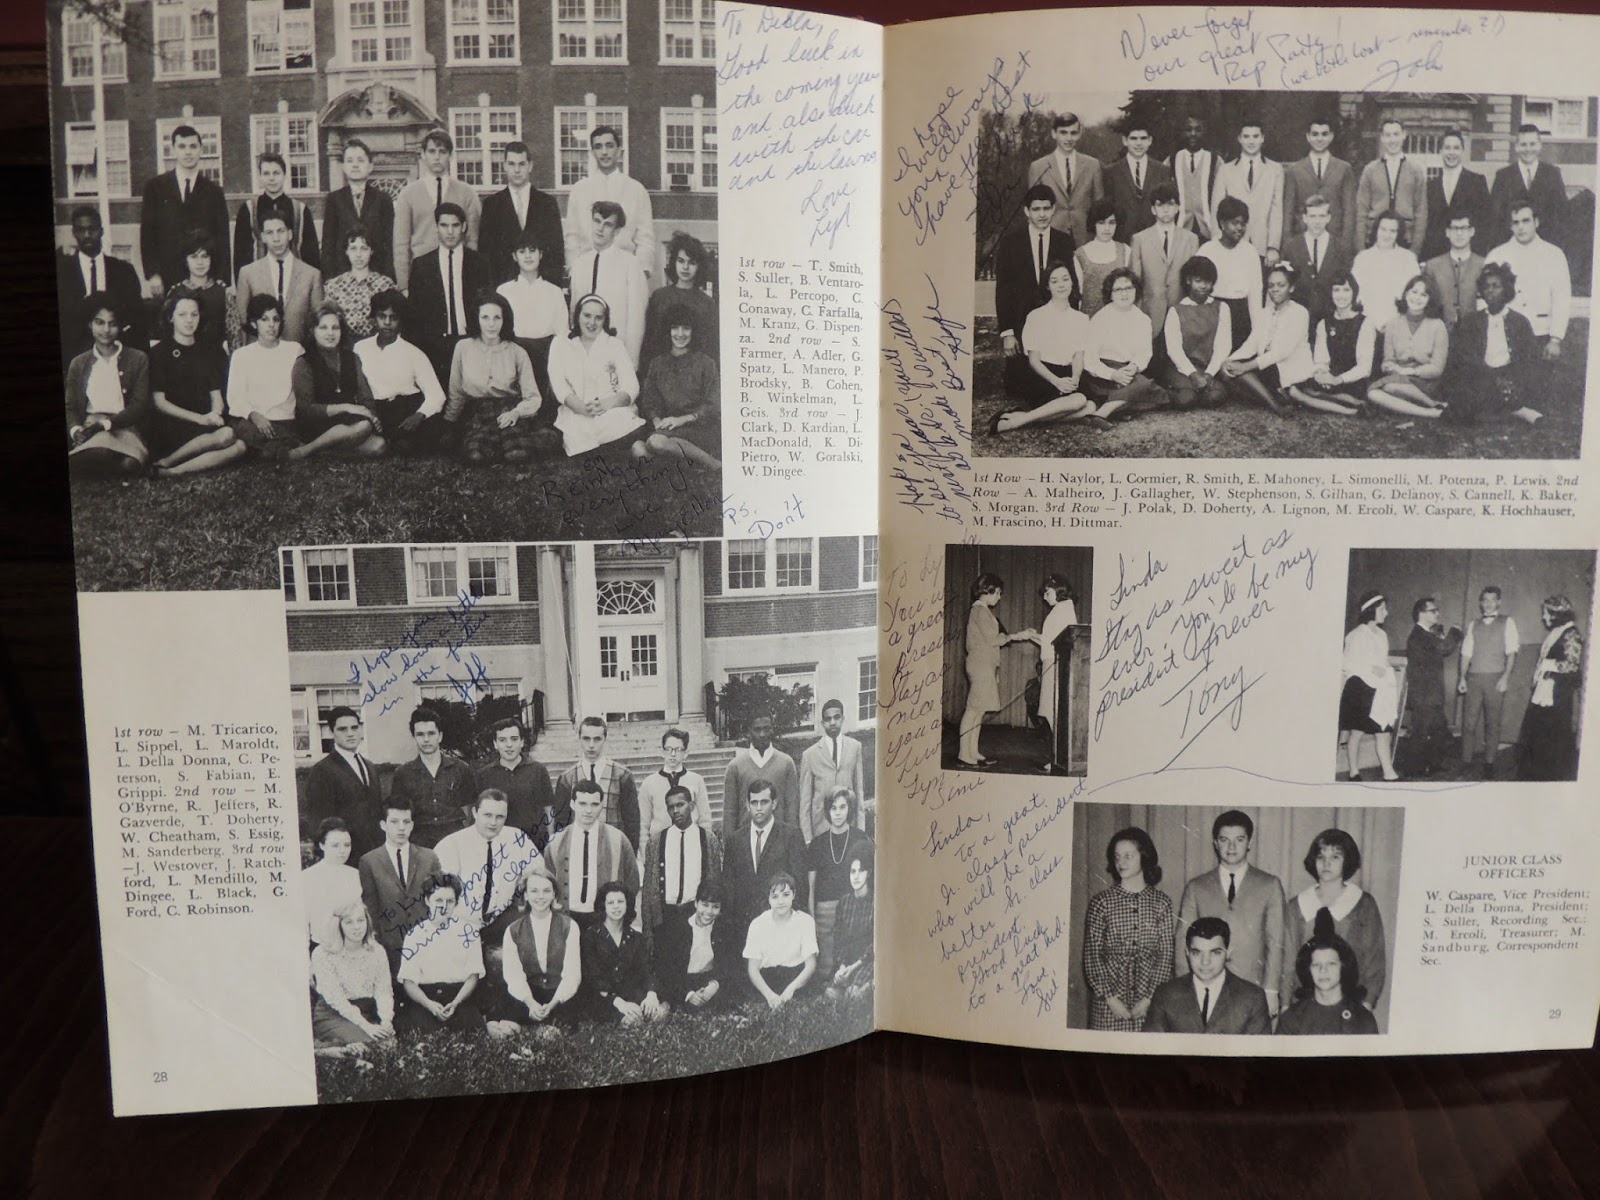 To Della,
Good luck in
the coming year
and also luck
with the
and the
Love
Lyl
1st row — T. Smith,
S. Suller, B. Ventaro-
la, L. Percopo, C.
Conaway, C. Farfalla,
M. Kranz, G. Dispen-
za. 2nd row — S.
Farmer, A. Adler, G.
Spatz, L. Manero, P.
Brodsky, B. Cohen,
B. Winkelman, L.
Geis. 3rd row — J.
Clark, D. Kardian, L.
MacDonald, K. Di-
Pietro, W. Goralski,
W. Dingee.
everything!
P.S.
Don't
I hope you
slow down a little
in the future
Jeff
1st row — M. Tricarico,
L. Sippel, L. Maroldt,
L. Della Donna, C. Pe-
terson, S. Fabian, E.
Grippi. 2nd row — M.
O'Byrne, R. Jeffers, R.
Gazverde, T. Doherty,
W. Cheatham, S. Essig,
M. Sanderberg. 3rd row
—J. Westover, J. Ratch-
ford, L. Mendillo, M.
Dingee, L. Black, G.
Ford, C. Robinson.
To Linda
Never forget those
Driver ed. classes
28
Never forget
our great
Rep Party!
(we both lost — remember?!)
John
I hope
you always
have
1st Row — H. Naylor, L. Cormier, R. Smith, E. Mahoney, L. Simonelli, M. Potenza, P. Lewis. 2nd
Row — A. Malheiro, J. Gallagher, W. Stephenson, S. Gilhan, G. Delanoy, S. Cannell, K. Baker,
S. Morgan. 3rd Row — J. Polak, D. Doherty, A. Lignon, M. Ercoli, W. Caspare, K. Hochhauser,
M. Frascino, H. Dittmar.
Linda
Stay as sweet as
ever, You'll be my
president forever
Tony
To
a great
Stay as
nice
you a
Linda,
To a great
Jr. class president
who will be a
better Sr. class
president.
Good luck
to a great kid.
Love,
Sue
JUNIOR CLASS
OFFICERS
W. Caspare, Vice President;
L. Della Donna, President;
S. Suller, Recording Sec.;
M. Ercoli, Treasurer; M.
Sandburg, Correspondent
Sec.
29